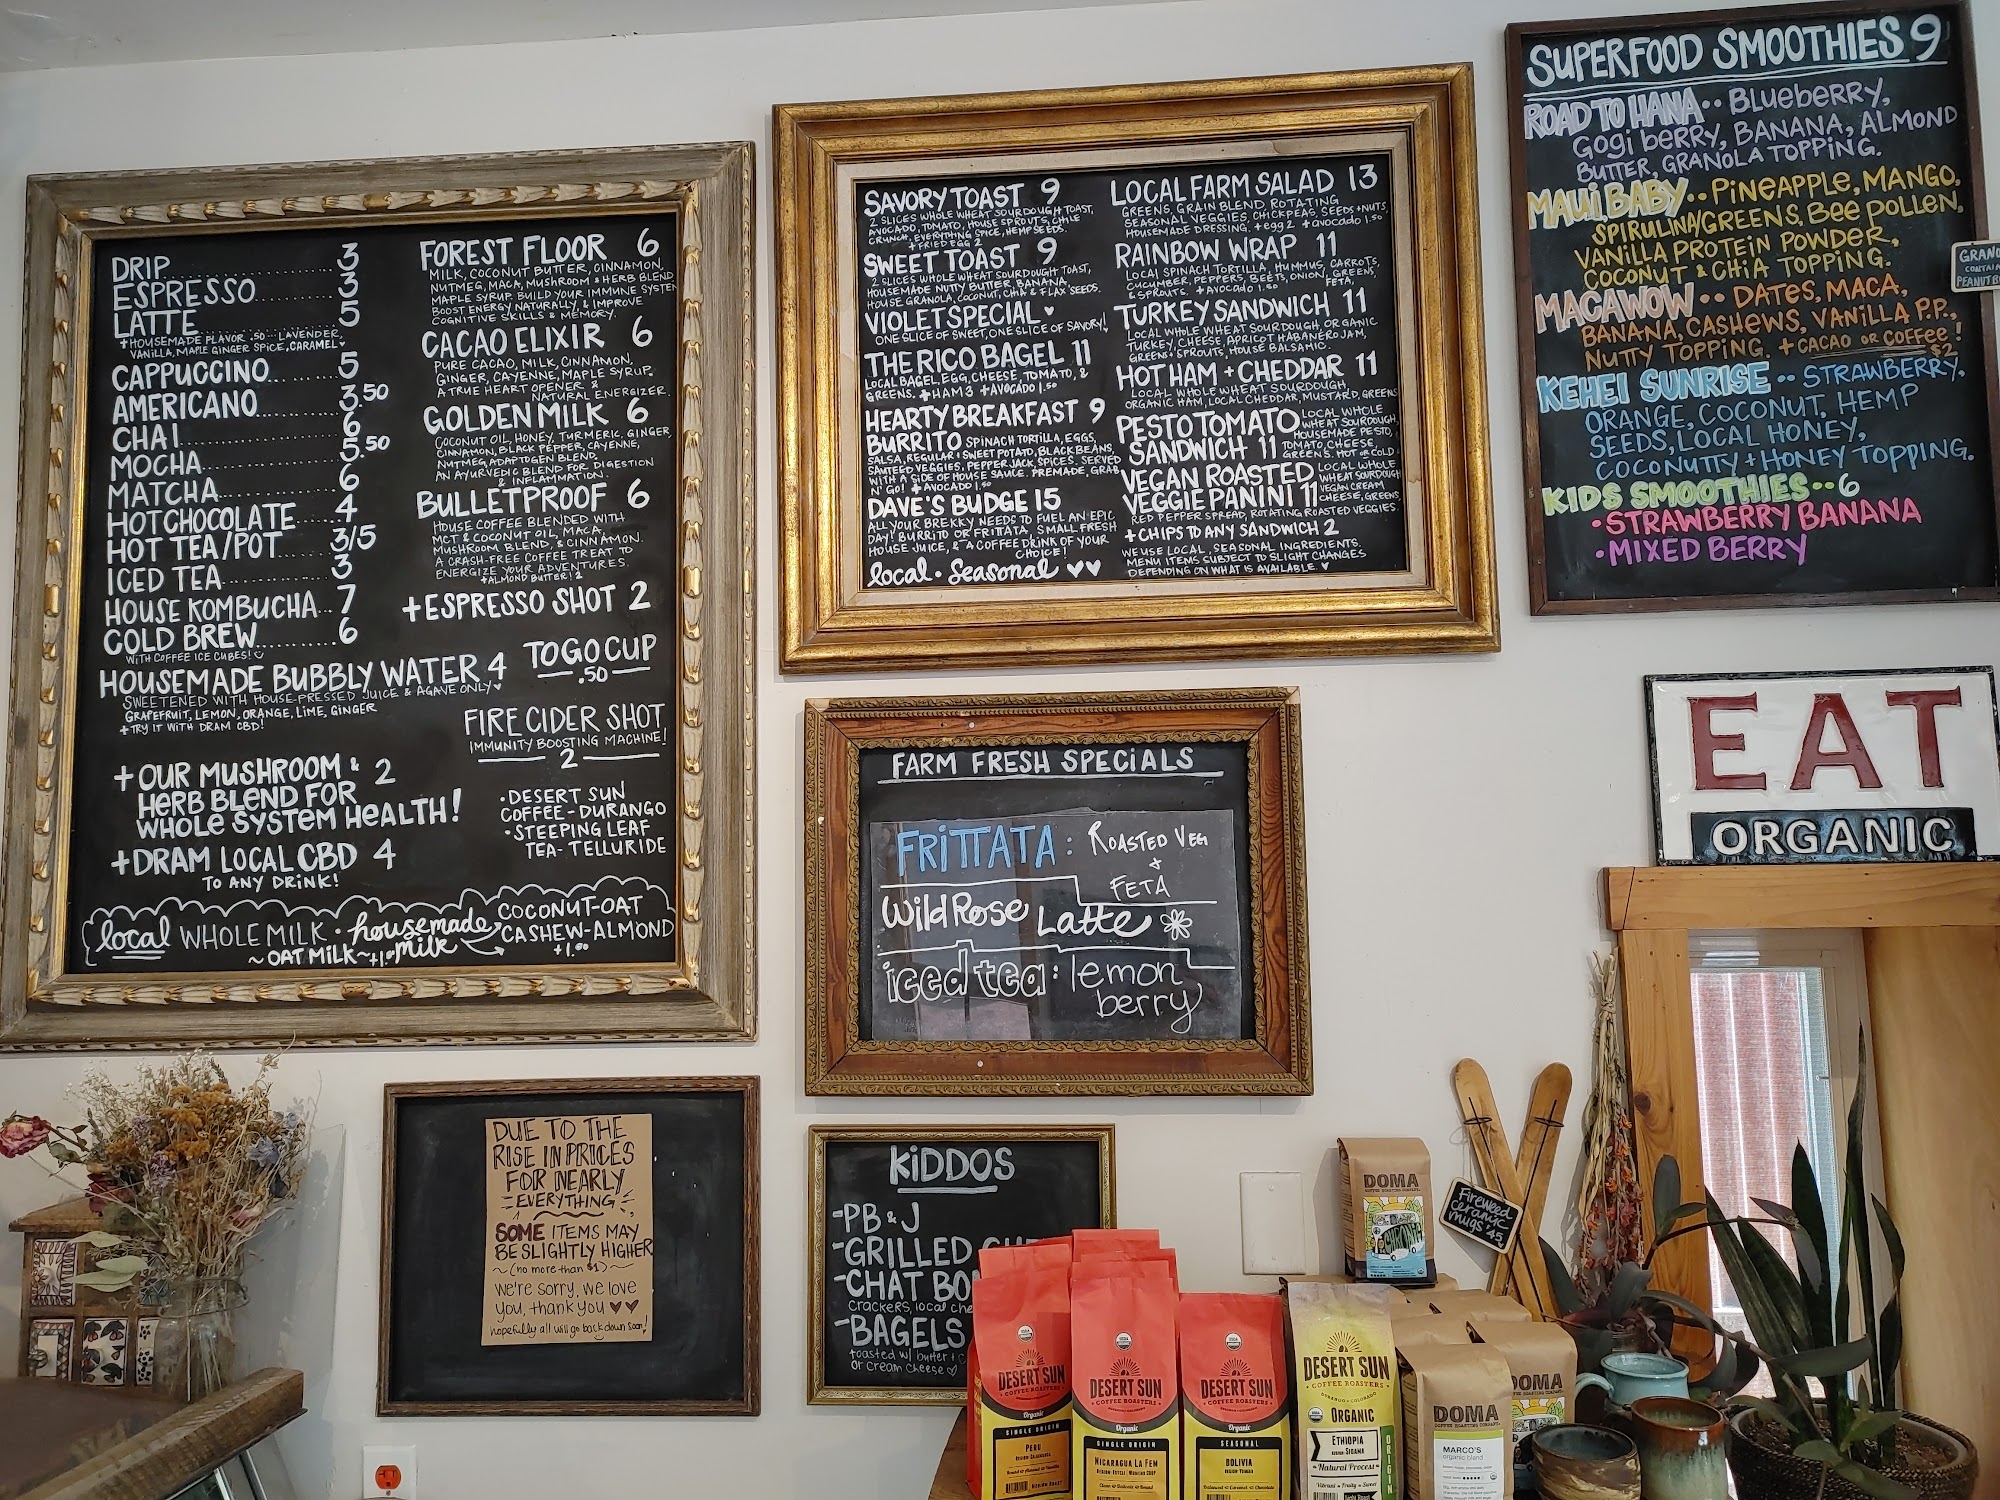 DRIP 3
ESPRESSO 3
LATTE 5
+HOUSEMADE FLAVOR .50 LAVENDER,
VANILLA, MAPLE GINGER SPICE, CARAMEL ♥
CAPPUCCINO 5
AMERICANO 3.50
CHAI 6
MOCHA 5.50
MATCHA 6
HOT CHOCOLATE 4
HOT TEA/POT 3/5
ICED TEA 3
HOUSE KOMBUCHA 7
COLD BREW 6
WITH COFFEE ICE CUBES!
HOUSEMADE BUBBLY WATER 4
SWEETENED WITH HOUSE-PRESSED JUICE & AGAVE ONLY ♥
GRAPEFRUIT, LEMON, ORANGE, LIME, GINGER
+TRY IT WITH DRAM CBD!
+ OUR MUSHROOM & 2
HERB BLEND FOR
WHOLE SYSTEM HEALTH!
+DRAM LOCAL CBD 4
TO ANY DRINK!
FOREST FLOOR 6
MILK, COCONUT BUTTER, CINNAMON,
NUTMEG, MACA, MUSHROOM & HERB BLEND
MAPLE SYRUP. BUILD YOUR IMMUNE SYSTEM
BOOST ENERGY NATURALLY & IMPROVE
COGNITIVE SKILLS & MEMORY.
CACAO ELIXIR 6
PURE CACAO, MILK, CINNAMON,
GINGER, CAYENNE, MAPLE SYRUP,
A TRUE HEART OPENER &
NATURAL ENERGIZER.
GOLDEN MILK 6
COCONUT OIL, HONEY, TURMERIC, GINGER,
CINNAMON, BLACK PEPPER, CAYENNE,
NUTMEG, ADAPTOGEN BLEND.
AN AYURVEDIC BLEND FOR DIGESTION
& INFLAMMATION.
BULLETPROOF 6
HOUSE COFFEE BLENDED WITH
MCT & COCONUT OIL, MACA,
MUSHROOM BLEND, & CINNAMON.
A CRASH-FREE COFFEE TREAT TO
ENERGIZE YOUR ADVENTURES.
+ALMOND BUTTER! 2
+ESPRESSO SHOT 2
TO GO CUP
.50
FIRE CIDER SHOT
IMMUNITY BOOSTING MACHINE!
2
•DESERT SUN
COFFEE - DURANGO
•STEEPING LEAF
TEA - TELLURIDE
local WHOLE MILK • housemade milk COCONUT-OAT
CASHEW-ALMOND
~OAT MILK~ +1.00
+1.00
SAVORY TOAST 9
2 SLICES WHOLE WHEAT SOURDOUGH TOAST,
AVOCADO, TOMATO, HOUSE SPROUTS, CHILE
CRUNCH, EVERYTHING SPICE, HEMP SEEDS.
+FRIED EGG 2
SWEET TOAST 9
2 SLICES WHOLE WHEAT SOURDOUGH TOAST,
HOUSEMADE NUTTY BUTTER, BANANA,
HOUSE GRANOLA, COCONUT, CHIA & FLAX SEEDS.
VIOLET SPECIAL ♥
ONE SLICE OF SWEET, ONE SLICE OF SAVORY!
THE RICO BAGEL 11
LOCAL BAGEL, EGG, CHEESE, TOMATO, &
GREENS. +HAM 3 +AVOCADO 1.50
HEARTY BREAKFAST 9
BURRITO SPINACH TORTILLA, EGGS,
SALSA, REGULAR + SWEET POTATO, BLACK BEANS,
SAUTEED VEGGIES, PEPPERJACK, SPICES. SERVED
WITH A SIDE OF HOUSE SAUCE. PREMADE, GRAB
N' GO! + AVOCADO 1.50
DAVE'S BUDGE 15
ALL YOUR BREKKY NEEDS TO FUEL AN EPIC
DAY! BURRITO OR FRITTATA, SMALL FRESH
HOUSE JUICE, & A COFFEE DRINK OF YOUR
CHOICE!
local • seasonal ♥♥
LOCAL FARM SALAD 13
GREENS, GRAIN BLEND, ROTATING
SEASONAL VEGGIES, CHICKPEAS, SEEDS + NUTS,
HOUSEMADE DRESSING. +egg 2 +avocado 1.50
RAINBOW WRAP 11
LOCAL SPINACH TORTILLA, HUMMUS, CARROTS,
CUCUMBER, PEPPERS, BEETS, ONION, GREENS,
& SPROUTS. + AVOCADO 1.50 FETA,
TURKEY SANDWICH 11
LOCAL WHOLE WHEAT SOURDOUGH, ORGANIC
TURKEY, CHEESE, APRICOT HABANERO JAM,
GREENS + SPROUTS, HOUSE BALSAMIC.
HOT HAM + CHEDDAR 11
LOCAL WHOLE WHEAT SOURDOUGH,
ORGANIC HAM, LOCAL CHEDDAR, MUSTARD, GREENS
PESTO TOMATO
SANDWICH 11
LOCAL WHOLE
WHEAT SOURDOUGH,
HOUSEMADE PESTO,
TOMATO, CHEESE,
GREENS. HOT OR COLD
VEGAN ROASTED
VEGGIE PANINI 11
LOCAL WHOLE
WHEAT SOURDOUGH
VEGAN CREAM
CHEESE, GREENS,
RED PEPPER SPREAD, ROTATING ROASTED VEGGIES.
+CHIPS TO ANY SANDWICH 2
WE USE LOCAL, SEASONAL INGREDIENTS.
MENU ITEMS SUBJECT TO SLIGHT CHANGES
DEPENDING ON WHAT IS AVAILABLE. ♥
SUPERFOOD SMOOTHIES 9
ROAD TO HANA •• BLUEBERRY,
GOGI BERRY, BANANA, ALMOND
BUTTER, GRANOLA TOPPING.
MAUI BABY •• PINEAPPLE, MANGO,
SPIRULINA/GREENS, BEE POLLEN,
VANILLA PROTEIN POWDER,
COCONUT & CHIA TOPPING.
MACAWOW •• DATES, MACA,
BANANA, CASHEWS, VANILLA P.P.,
NUTTY TOPPING. +CACAO OR COFFEE!
$2
KEHEI SUNRISE •• STRAWBERRY,
ORANGE, COCONUT, HEMP
SEEDS, LOCAL HONEY,
COCONUTTY + HONEY TOPPING.
KIDS SMOOTHIES •• 6
•STRAWBERRY BANANA
•MIXED BERRY
EAT
ORGANIC
FARM FRESH SPECIALS
FRITTATA: ROASTED VEG
+
FETA
Wild Rose Latte
iced tea: lemon
berry
DUE TO THE
RISE IN PRICES
FOR NEARLY
EVERYTHING
SOME ITEMS MAY
BE SLIGHTLY HIGHER
(no more than $1)
we're sorry, we love
you, thank you ♥♥
hopefully all will go back down soon!
KIDDOS
-PB & J
-GRILLED
-CHAT
CRACKERS, local
-BAGELS
toasted w/ butter
or cream cheese
DOMA
COFFEE ROASTING COMPANY
Fireweed
ceramic
mugs $45
DESERT SUN
COFFEE ROASTERS
Organic
SINGLE ORIGIN
PERU
DESERT SUN
COFFEE ROASTERS
Organic
SINGLE ORIGIN
NICARAGUA LA FEM
DESERT SUN
COFFEE ROASTERS
Organic
SEASONAL
BOLIVIA
DESERT SUN
COFFEE ROASTERS
DURANGO • COLORADO
ORGANIC
ETHIOPIA
REGION SIDAMA
Natural Process
ORIGIN
DOMA
COFFEE ROASTING COMPANY
MARCO'S
organic blend
DOMA